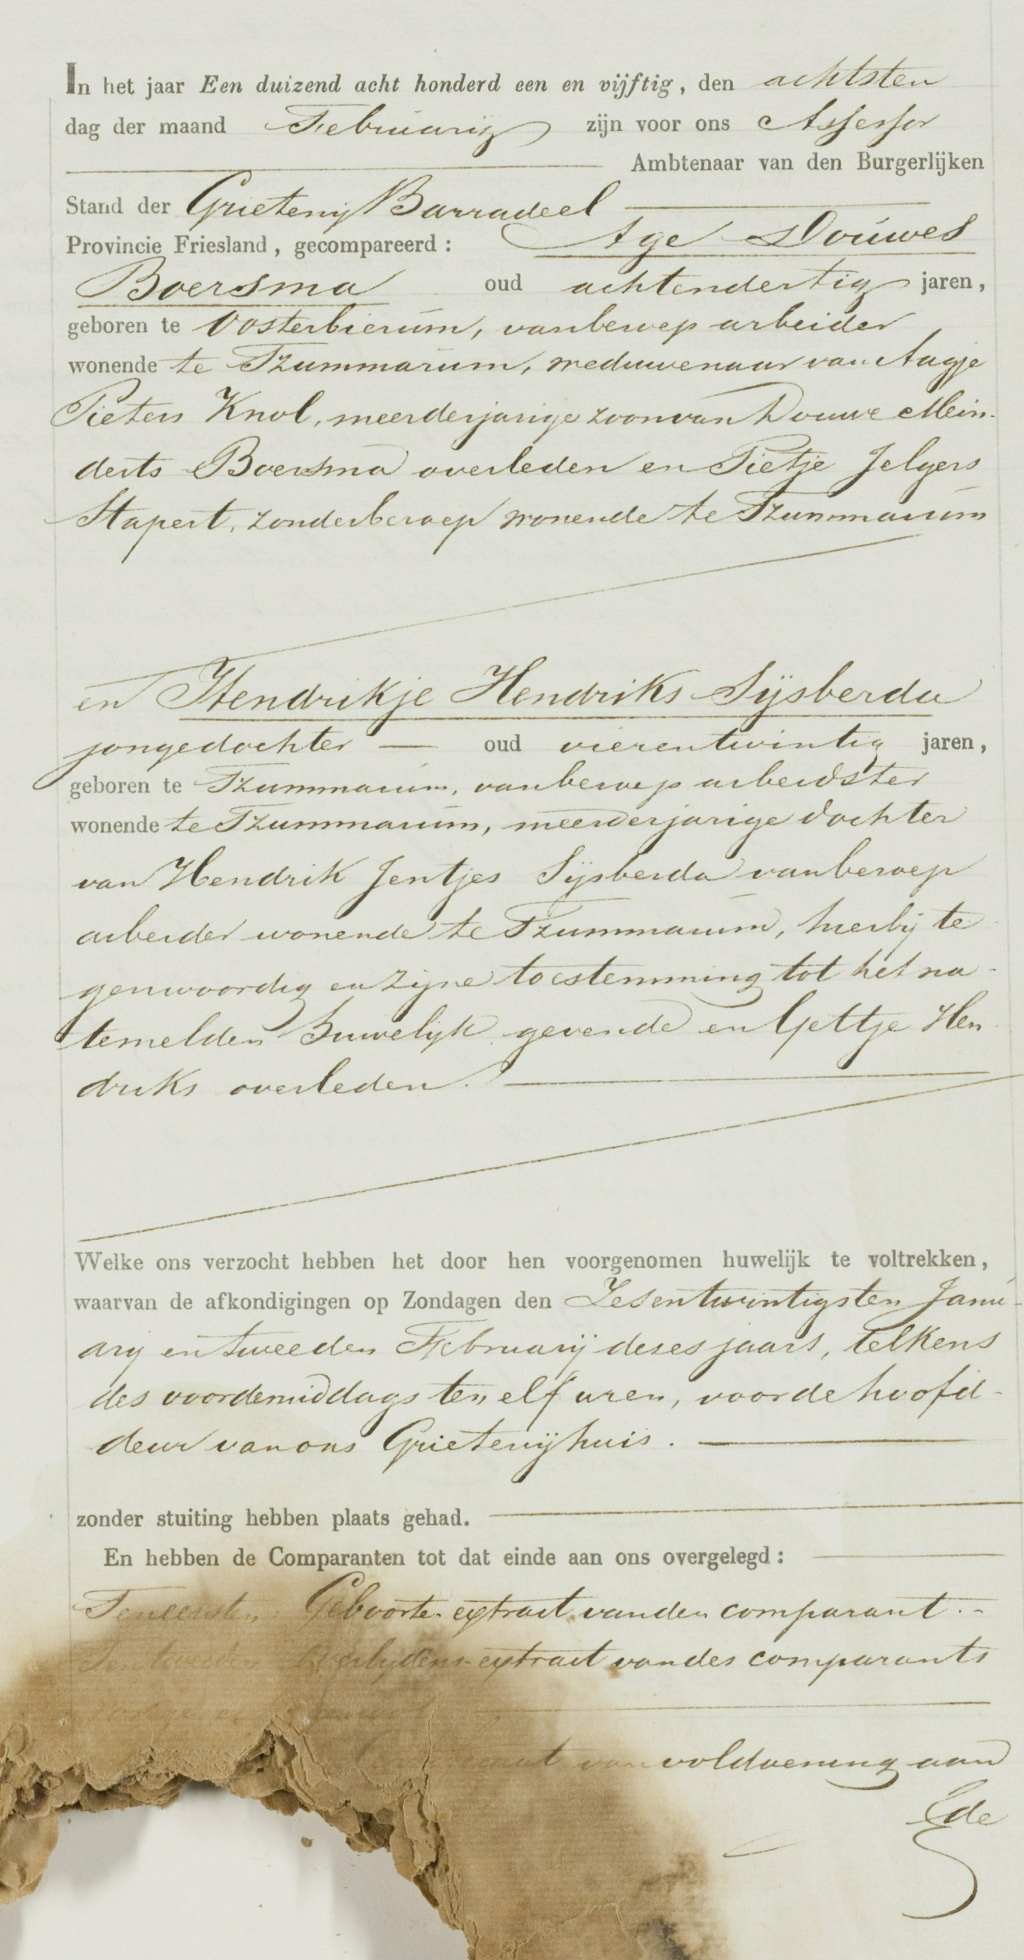 In het jaar Een duizend acht honderd een en vijftig, den achtsten
dag der maand Februarij zijn voor ons Assessor
Ambtenaar van den Burgerlijken
Stand der Grietenij Barradeel
Provincie Friesland, gecompareerd: Age Douwes
Boersma oud achtendertig jaren,
geboren te Oosterbierum, van beroep arbeider
wonende te Tzummarum, weduwenaar van Aagje
Pieters Knol, meerderjarige zoon van Douwe Mein-
derts Boersma overleden en Pietje Jelgers
Stapert, zonder beroep wonende te Tzummarum
en Hendrikje Hendriks Sijsberda
jongedochter — oud vierentwintig jaren,
geboren te Tzummarum, van beroep arbeidster
wonende te Tzummarum, meerderjarige dochter
van Hendrik Jentjes Sijsberda van beroep
arbeider wonende te Tzummarum, hierbij te
genwoordig en zijne toestemming tot het na-
temelden huwelijk gevende en Gettje Hen
driks overleden.
Welke ons verzocht hebben het door hen voorgenomen huwelijk te voltrekken,
waarvan de afkondigingen op Zondagen den Zesentwintigsten Janu-
arij en tweeden Februarij deses jaars, telkens
des voordemiddags ten elf uren, voor de hoofd-
deur van ons Grietenijhuis.
zonder stuiting hebben plaats gehad.
En hebben de Comparanten tot dat einde aan ons overgelegd:
Ten eersten Geboorte extract van den comparant.
Ten tweeden Overlydens extract van des comparants
van voldoening aan
de